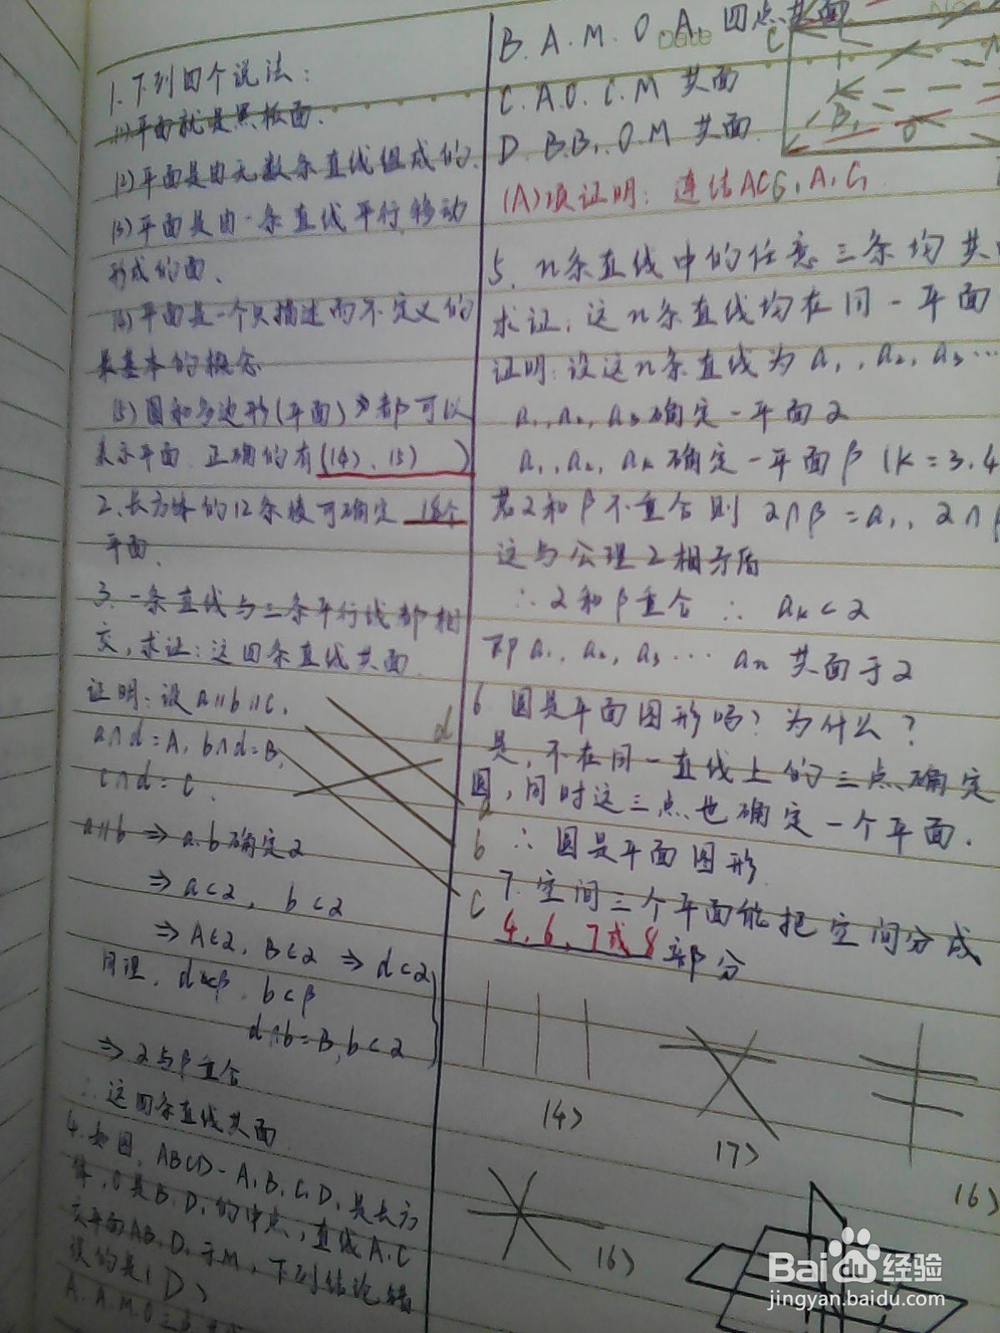 1.下列四个说法：
(1)平面就是黑板面.
(2)平面是由无数条直线组成的.
(3)平面是由一条直线平行移动
形成的面、
(4)平面是一个只描述而不定义的
最基本的概念
(5)圆和多边形(平面)都可以
表示平面.正确的有((4)、(5) )
2.长方体的12条棱可确定
平面.
3.一条直线与三条平行线都相
交,求证:这四条直线共面.
证明:设a∥b∥c,
a∩d=A, b∩d=B,
c∩d=C.
a∥b⇒a.b确定2
⇒a⊂2, b⊂2
⇒A∈2, B∈2⇒d⊂2
同理, d⊂β, b⊂β
d∩b=B,b⊂2
⇒2与β重合
∴这四条直线共面
4.如图, ABCD-A₁B₁C₁D₁是长方
体,O是B₁D₁的中点,直线A₁C
交平面AB₁D₁于M,下列结论错
误的是(D)
A.A.M.O三点
B.A.M.O.A₁四点共面
C.A.O.C.M共面
D.B.B₁.O.M共面.
(A)项证明:连结
5. n条直线中的任意三条均共
求证:这n条直线均在同一平面
证明:设这n条直线为a₁,a₂,a₃…
a₁,a₂,a₃确定一平面2
a₁,a₂,aₖ确定一平面β(K=3.4
若2和β不重合则2∩β=a₁,2∩β
这与公理2相矛盾
∴2和β重合∴aₖ⊂2
即a₁,a₂,a₃…aₙ共面于2
6.圆是平面图形吗?为什么?
是,不在同一直线上的三点确定
圆,同时这三点也确定一个平面.
∴圆是平面图形
7.空间三个平面能把空间分成
4,6,7或8部分
d
a
b
c
C
B₁
O
(4)
(7)
(6)
(6)
Baidu经验
jingyan.baidu.com